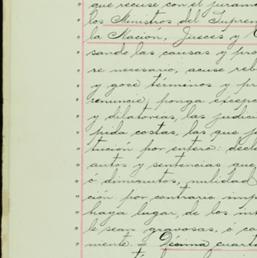 que recuse con el juramen
los Ministros del Suprem
la Nación, Jueces y
sando las causas y pro
se necesario, acuse reb
y gose términos y pr
renuncie; ponga excepc
y dilatorias, las judici
pida costas, las que p
tución por entero: decl
autos y sentencias que
ó diminutos, nulidad
ción por contrario imp
haga lugar, de los in
le sean gravosas, ó co
mente. = Décima cuarta